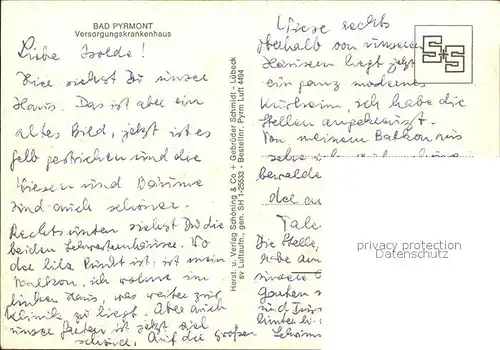 BAD PYRMONT
Versorgungskrankenhaus
Liebe Isolde!
Hier siehst Du unser
Haus. Das ist aber ein
altes Bild, jetzt ist es
gelb gestrichen und die
Wiesen und Bäume
sind auch schöner.
Rechts unten siehst Du die
beiden Schwesternhäuser. Wo
der lila Punkt ist, ist mein
Balkon, ich wohne im
linken Haus, was weiter zur
Klinik zu liegt. Aber auch
unser Garten ist jetzt viel
schöner. Auf die großen
Herst. u. Verlag Schöning & Co + Gebrüder Schmidt - Lübeck
sv Luftaufn., gen. SH 1-25533 - Bestellnr. Pyrm Luft 4494
Wiese rechts
oberhalb von unseren
Häusern liegt jetzt
ein ganz modernes
Kurheim, ich habe die
Stellen angekreuzt.
Von meinem Balkon aus
bewalde
Tale
Die Stelle,
habe an
Garten
und
hinter
S+S
privacy protection
Datenschutz